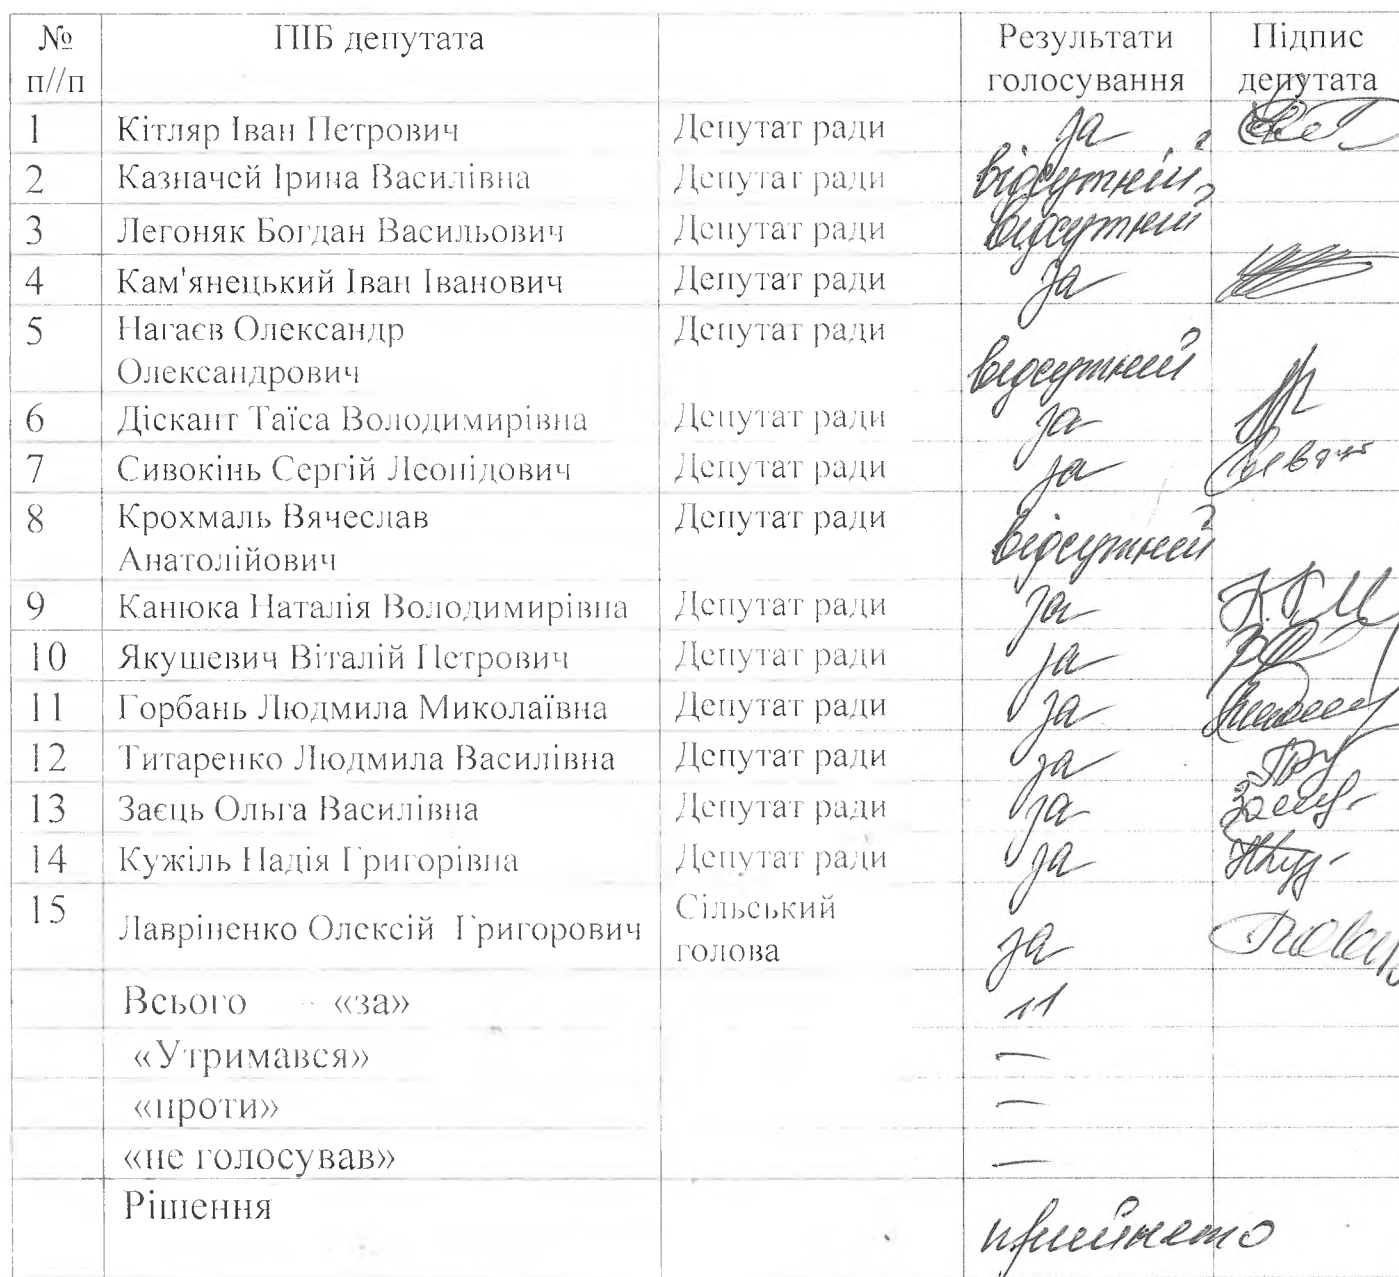 № п//п ПІБ депутата Результати голосування Підпис депутата
1 Кітляр Іван Петрович Депутат ради за
2 Казначей Ірина Василівна Депутат ради відсутній
3 Легоняк Богдан Васильович Депутат ради відсутній
4 Кам'янецький Іван Іванович Депутат ради за
5 Нагаєв Олександр Олександрович Депутат ради відсутній
6 Діскант Таїса Володимирівна Депутат ради за
7 Сивокінь Сергій Леонідович Депутат ради за
8 Крохмаль Вячеслав Анатолійович Депутат ради відсутній
9 Канюка Наталія Володимирівна Депутат ради за
10 Якушевич Віталій Петрович Депутат ради за
11 Горбань Людмила Миколаївна Депутат ради за
12 Титаренко Людмила Василівна Депутат ради за
13 Заєць Ольга Василівна Депутат ради за
14 Кужіль Надія Григорівна Депутат ради за
15 Лавріненко Олексій Григорович Сільський голова за
Всього «за» 11
«Утримався» —
«проти» —
«не голосував» —
Рішення прийнято